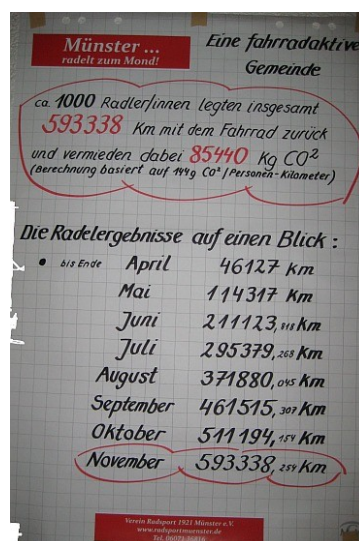 Münster ...
radelt zum Mond!
Eine fahrradaktive
Gemeinde
ca. 1000 Radler/innen legten insgesamt
593338 Km mit dem Fahrrad zurück
und vermieden dabei 85440 Kg CO²
(Berechnung basiert auf 144g CO²/Personen-Kilometer)
Die Radelergebnisse auf einen Blick :
• bis Ende April 46127 Km
Mai 114317 Km
Juni 211123,818 Km
Juli 295379,268 Km
August 371880,045 Km
September 461515,307 Km
Oktober 511194,154 Km
November 593338,254 Km
Verein Radsport 1921 Münster e.V.
www.radsportmuenster.de
Tel. 06071-36816